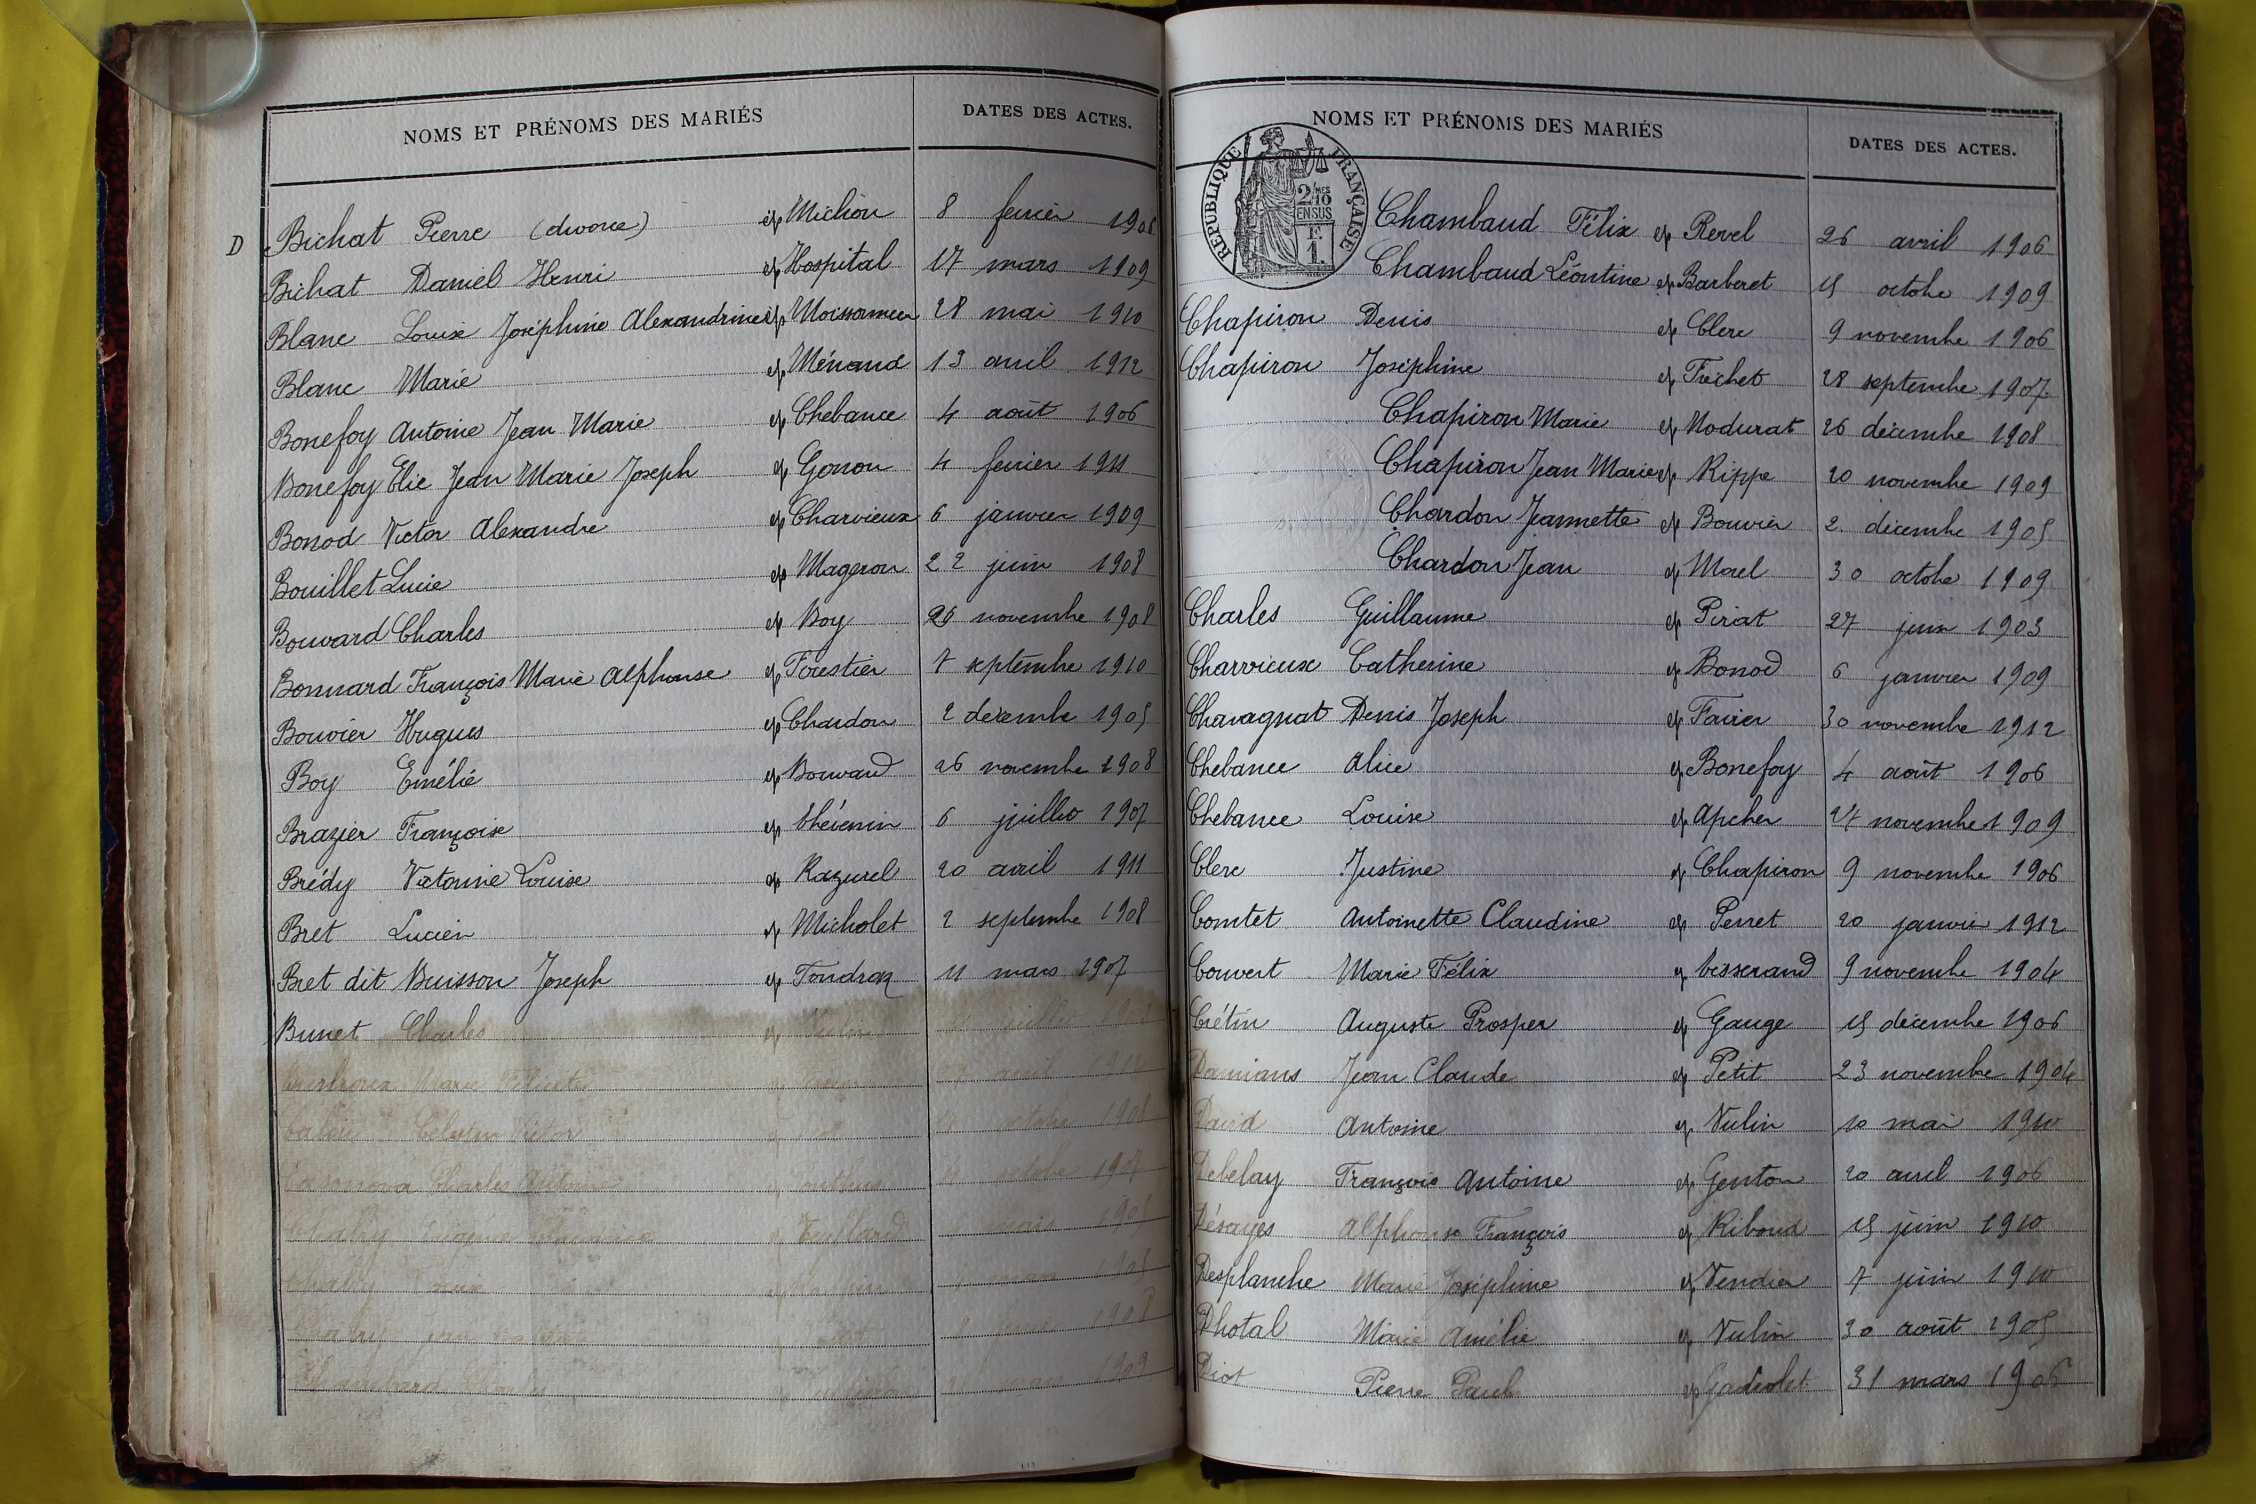 NOMS ET PRÉNOMS DES MARIÉS DATES DES ACTES.
D Bichat Pierre (divorce) ép Michon 8 fevrier 1908
Bichat Daniel Henri ép Hospital 17 mars 1909
Blanc Louise Joséphine Alexandrine ép 28 mai 1910
Blanc Marie ép Ménand 13 avril 1912
Bonefoy Antoine Jean Marie ép Chebance 4 août 1906
Bonefoy Elie Jean Marie Joseph ép Gonon 4 fevrier 1911
Bonod Victor Alexandre ép Charvieux 6 janvier 1909
Bouillet Lucie ép Mageron 22 juin 1908
Bouvard Charles ép Boy 26 novembre 1908
Bonnard François Marie Alphonse ép Forestier 7 septembre 1910
Bouvier Hugues ép Chardon 2 décembre 1905
Boy Emélie ép Bouvard 26 novembre 1908
Brazier Françoise ép thévenin 6 juillet 1907
Brédy Victorine Louise ép Razurel 20 avril 1911
Bret Lucien ép Micholet 2 septembre 1908
Bret dit Buisson Joseph ép Tondraz 11 mars 1907
Bunet Charles ép juillet
Marie ép avril 1912
Victor octobre 1908
Casanova Charles Antoine octobre 1907
Vuillard mars
1908
mai 1909
NOMS ET PRÉNOMS DES MARIÉS DATES DES ACTES.
RÉPUBLIQUE FRANÇAISE
2/10MES
EN SUS
F.
1.
Chambaud Félix ép Revel 26 avril 1906
Chambaud Léontine ép Barberet 15 octobre 1909
Chapiron Denis ép Clerc 9 novembre 1906
Chapiron Joséphine ép Fréchet 28 septembre 1907
Chapiron Marie ép Nodurat 26 décembre 1908
Chapiron Jean Marie ép Rippe 20 novembre 1909
Chardon Jeannette ép Bouvier 2 décembre 1905
Chardon Jean ép Morel 30 octobre 1909
Charles Guillaume ép Pirat 27 juin 1903
Charvieux Catherine ép Bonod 6 janvier 1909
Chavagnat Denis Joseph ép Favier 30 novembre 1912
Chebance Alice ép Bonefoy 4 août 1906
Chebance Louise ép Apcher 27 novembre 1909
Clerc Justine ép Chapiron 9 novembre 1906
Comtet Antoinette Claudine ép Perret 20 janvier 1912
Convert Marie Félix ép tisserand 9 novembre 1904
Crétin Auguste Prosper ép Gauge 15 décembre 1906
Damians Jean Claude ép Petit 23 novembre 1904
David Antoine ép Vulin 10 mai 1910
Debelay François Antoine ép Genton 20 avril 1906
Désayes Alphonse François ép Riboud 15 juin 1910
Desplanche Marie Joséphine ép Vendier 7 juin 1910
Dhotal Marie Amélie ép Vulin 30 août 1905
Diot Pierre Paul ép Gadiolet 31 mars 1906